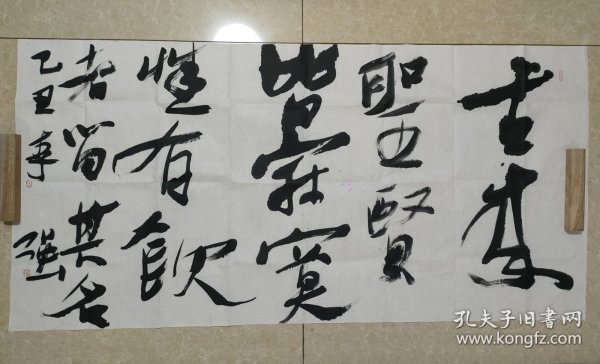 古来
聖賢
皆寂寞
惟有飲
者留其名
乙丑年 强
孔夫子旧书网
www.kongfz.com